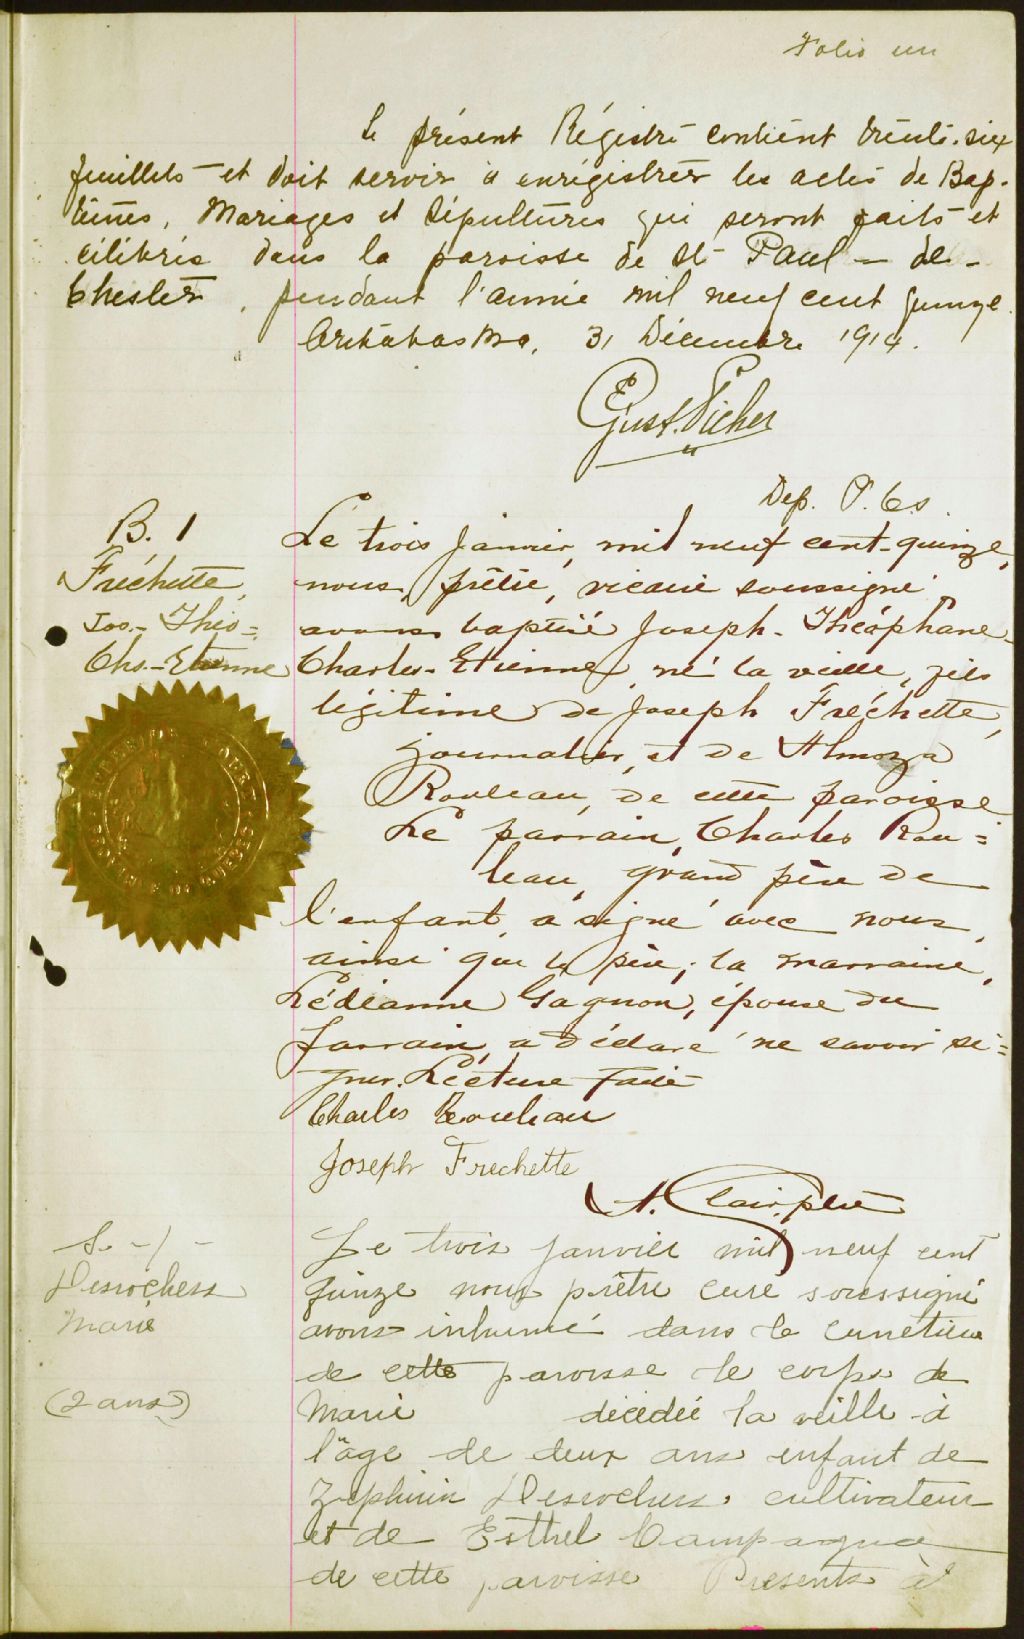 Folio un
Le présent Régistre contient trente-six
feuillets et doit servir à enrégistrer les actes de Bap-
têmes, Mariages et Sépultures qui seront faits et
célébrés dans la paroisse de St Paul - de -
Chester, pendant l'année mil neuf cent quinze.
Arthabaska, 31 Décembre 1914.
Gust. Picher
Dep. P. C. s.
B. 1
Fréchette,
Jos.- Théo-
Chs.-Etienne
Le trois janvier, mil neuf cent-quinze,
nous, prêtre, vicaire soussigné
avons baptisé Joseph-Théophane-
Charles-Etienne, né la veille, fils
légitime de Joseph Fréchette,
journalier, et de Almoza
Rouleau, de cette paroisse
Le parrain, Charles Rou=
leau, grand père de
l'enfant, a signé avec nous,
ainsi que le père; la marraine,
Lédianne Gagnon, épouse du
parrain, a déclaré ne savoir si=
gner. Lecture faite
Charles Rouleau
Joseph Frechette
A. Clair, ptre
SUPERIOR COURT
PROVINCE OF QUEBEC
S. - 1 -
Desrochers
Marie
(2 ans)
Le trois janvier mil neuf cent
quinze nous prêtre curé soussigné
avons inhumé dans le cimetière
de cette paroisse le corps de
Marie décédée la veille à
l'âge de deux ans enfant de
Zéphirin Desrochers, cultivateur
et de Esthel Campagna
de cette paroisse Présents à